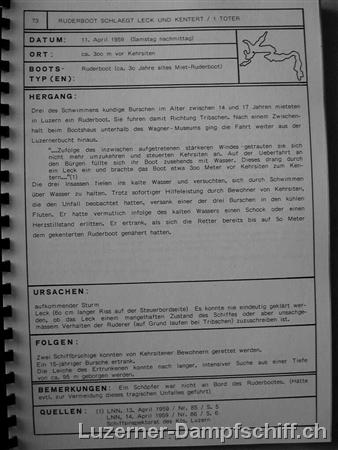 73 RUDERBOOT SCHLAEGT LECK UND KENTERT / 1 TOTER
DATUM: 11. April 1959 (Samstag nachmittag)
ORT: ca. 300 m vor Kehrsiten
BOOTS- Ruderboot (ca. 30 Jahre altes Miet-Ruderboot)
TYP(EN):
HERGANG:
Drei des Schwimmens kundige Burschen im Alter zwischen 14 und 17 Jahren mieteten
in Luzern ein Ruderboot. Sie fuhren damit Richtung Tribschen. Nach einem Zwischen-
halt beim Bootshaus unterhalb des Wagner-Museums ging die Fahrt weiter aus der
Luzernerbucht hinaus.
"...Zufolge des inzwischen aufgetretenen stärkeren Windes getrauten sie sich
nicht mehr umzukehren und steuerten Kehrsiten an. Auf der Ueberfahrt an
den Bürgen füllte sich ihr Boot zusehends mit Wasser. Dieses drang durch
ein Leck ein und brachte das Boot etwa 300 Meter vor Kehrsiten zum Ken-
tern..."(1)
Die drei Insassen fielen ins kalte Wasser und versuchten, sich durch Schwimmen
über Wasser zu halten. Trotz sofortiger Hilfeleistung durch Bewohner von Kehrsiten,
die den Unfall beobachtet hatten, versank einer der drei Burschen in den kühlen
Fluten. Er hatte vermutlich infolge des kalten Wassers einen Schock oder einen
Herzstillstand erlitten. Er ertrank, als sich die Retter bereits bis auf 50 Meter
dem gekenterten Ruderboot genähert hatten.
URSACHEN:
aufkommender Sturm
Leck (60 cm langer Riss auf der Steuerbordseite) Es konnte nie eindeutig geklärt wer-
den, ob das Leck einem mangelhaften Zustand des Schiffes oder aber unsachge-
mässem Verhalten der Ruderer (auf Grund laufen bei Tribschen) zuzuschreiben ist.
FOLGEN:
Zwei Schiffbrüchige konnten von Kehrsitener Bewohnern gerettet werden.
Ein 15-jähriger Bursche ertrank.
Die Leiche des Ertrunkenen konnte nach langer, intensiver Suche aus einer Tiefe
von ca. 95 m geborgen werden.
BEMERKUNGEN: Ein Schöpfer war nicht an Bord des Ruderbootes. (Hätte
evtl. zur Vermeidung dieses tragischen Unfalles geführt)
QUELLEN: (1) LNN, 13. April 1959 / Nr. 85 / S. 5
LNN, 14. April 1959 / Nr. 86 / S. 6
Schiffsinspektorat des Kts. Luzern
Luzerner-Dampfschiff.ch